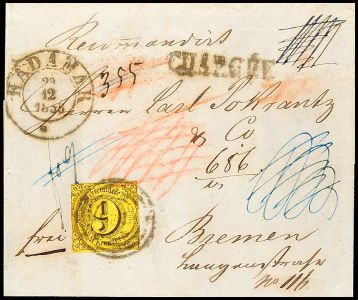 Recommandirt
CHARGÉE
HADAMAR
22
12
355
Herren Carl Pokrantz
& Co
686
9
frei
Bremen
Langenstraße
No 116